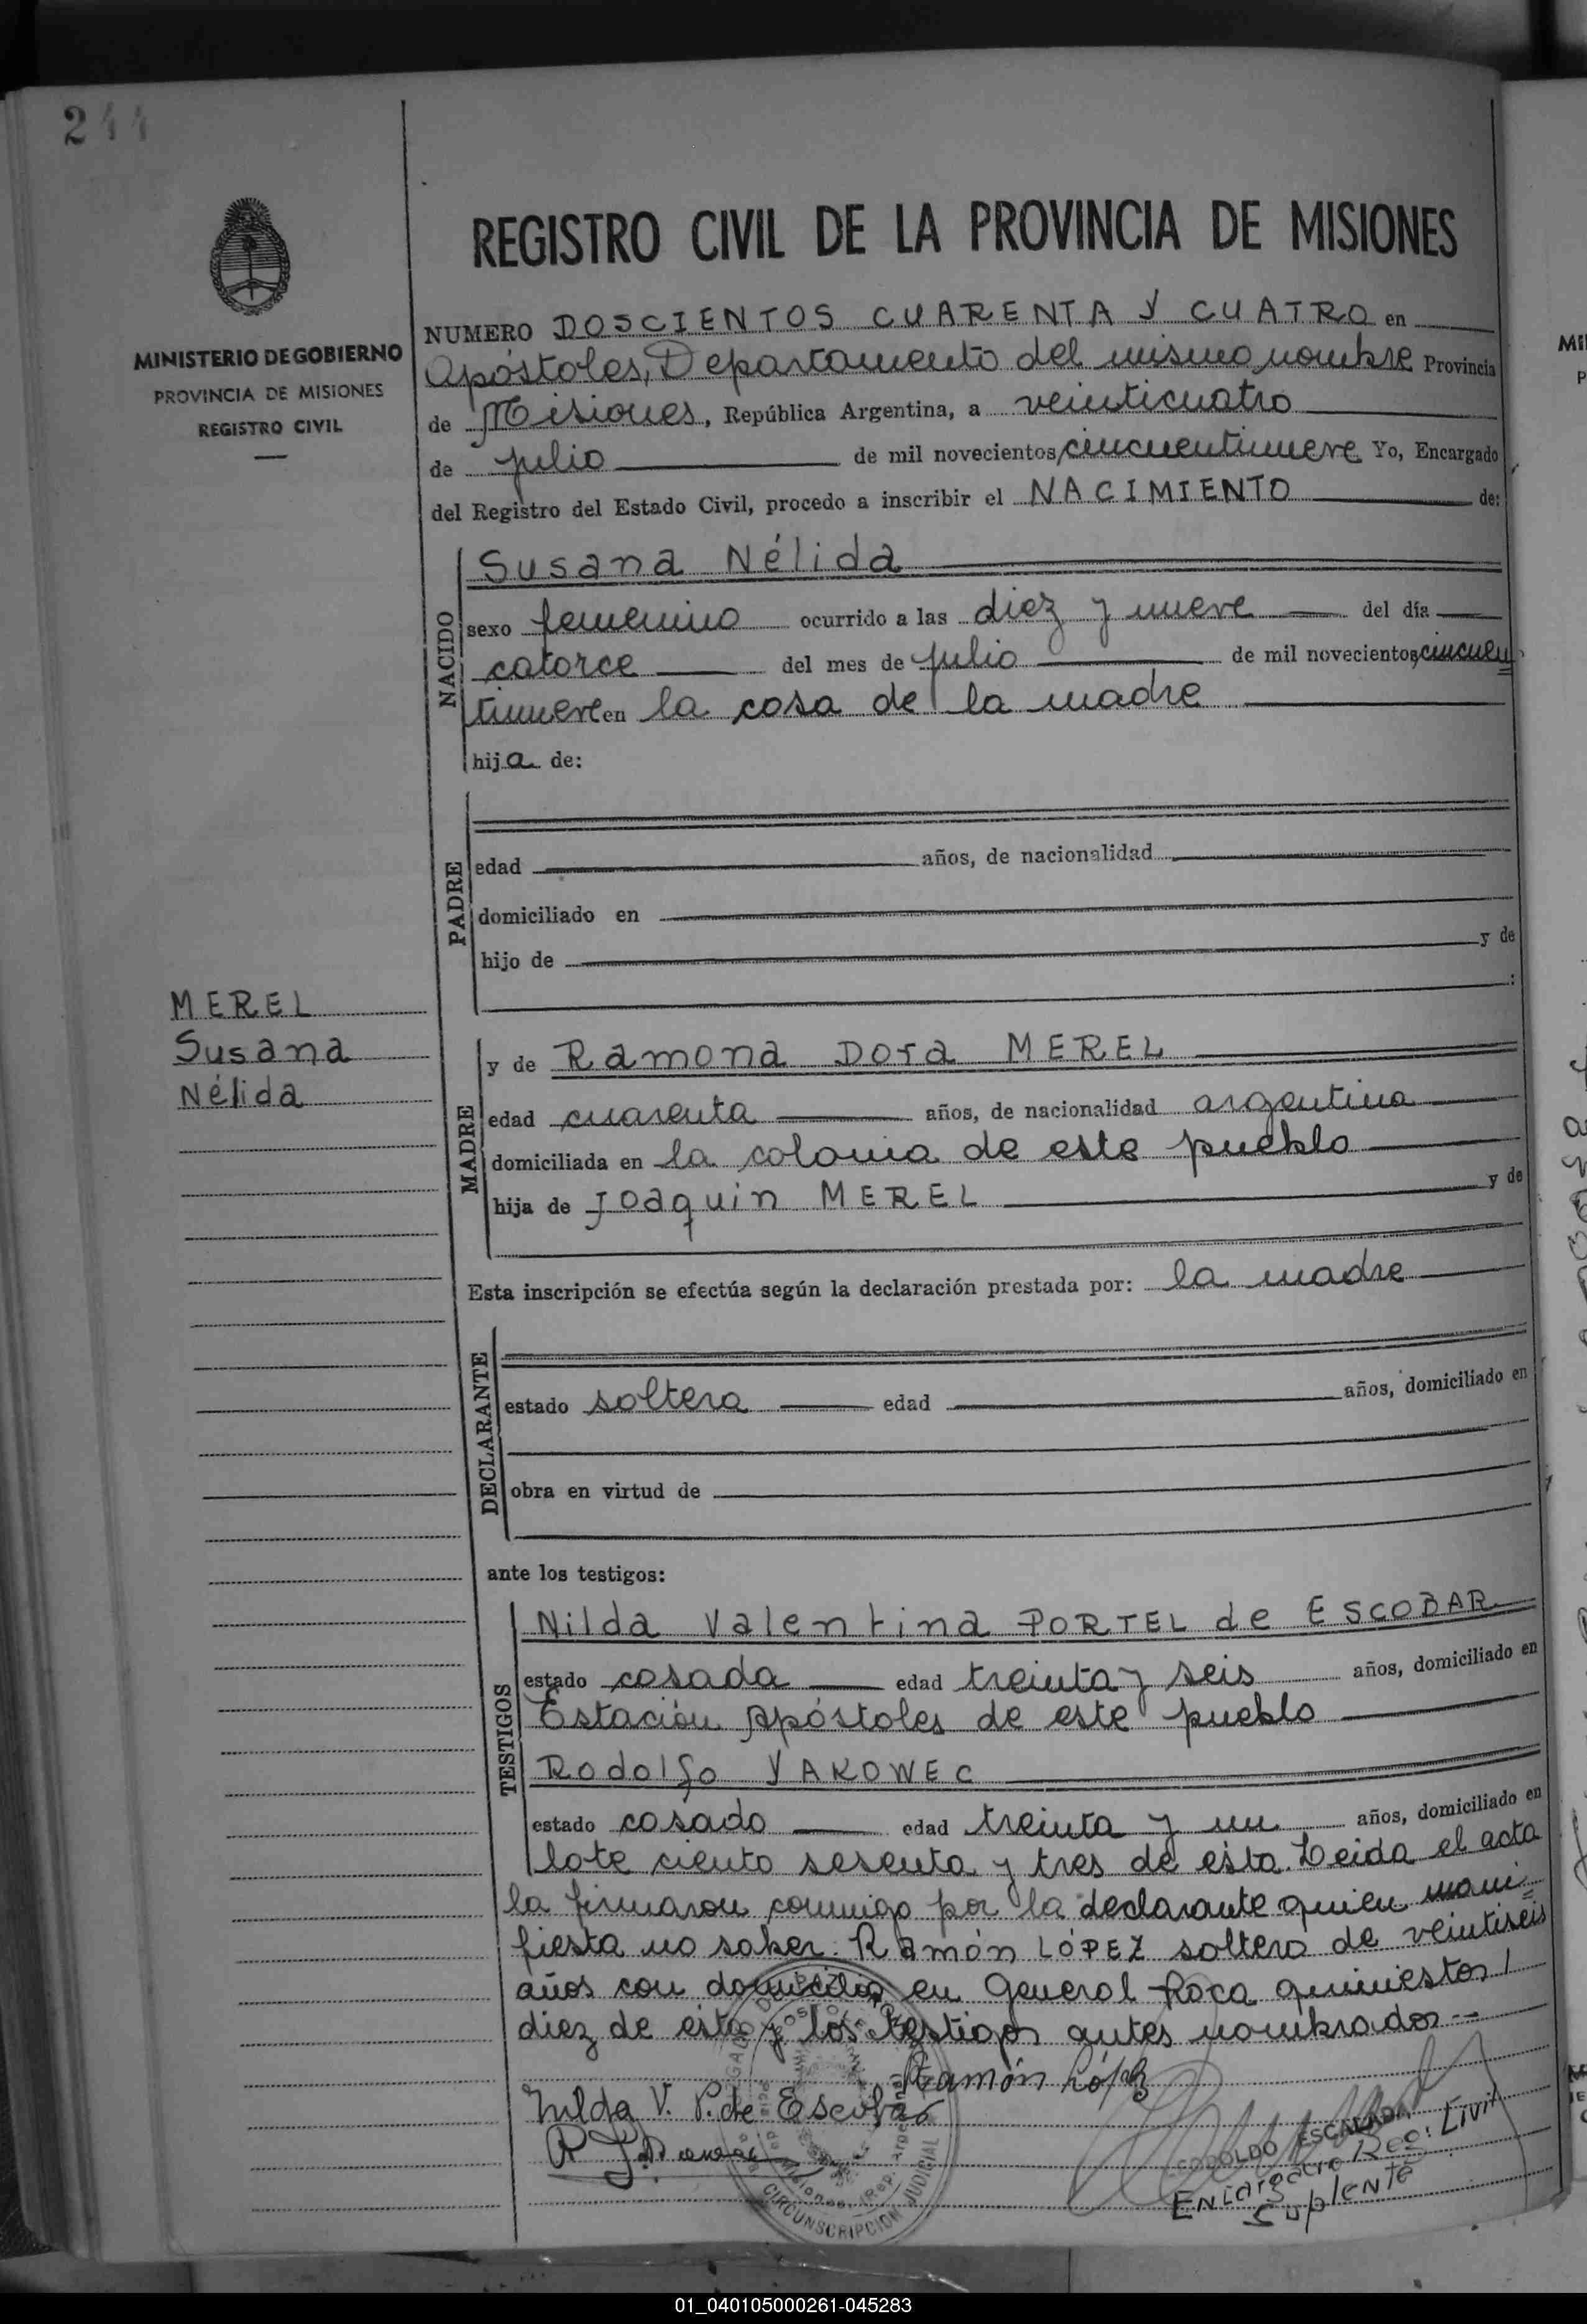 244
REGISTRO CIVIL DE LA PROVINCIA DE MISIONES
MINISTERIO DE GOBIERNO
PROVINCIA DE MISIONES
REGISTRO CIVIL
NUMERO DOSCIENTOS CUARENTA Y CUATRO en
Apóstoles, Departamento del mismo nombre Provincia
de Misiones, República Argentina, a veinticuatro
de julio de mil novecientos cincuentinueve Yo, Encargado
del Registro del Estado Civil, procedo a inscribir el NACIMIENTO de:
NACIDO
Susana Nélida
sexo femenino ocurrido a las diez y nueve del día
catorce del mes de julio de mil novecientos cincuen
tinueve en la casa de la madre
hija de:
PADRE
edad años, de nacionalidad
domiciliado en
hijo de y de
:
MEREL
Susana
Nélida
MADRE
y de Ramona Dora MEREL
edad cuarenta años, de nacionalidad argentina
domiciliada en la colonia de este pueblo
hija de Joaquin MEREL y de
Esta inscripción se efectúa según la declaración prestada por: la madre
DECLARANTE
estado soltera edad años, domiciliado en
obra en virtud de
ante los testigos:
TESTIGOS
Nilda Valentina PORTEL de ESCOBAR
estado casada edad treinta y seis años, domiciliado en
Estación Apóstoles de este pueblo
Rodolfo YAKOWEC
estado casado edad treinta y un años, domiciliado en
lote ciento sesenta y tres de esta. Leida el acta
la firmaron conmigo por la declarante quien mani=
fiesta no saber. Ramón LÓPEZ soltero de veintiseis
años con domicilio en General Roca quinientos
diez de ésta y los testigos antes nombrados --
Ramón López
Nilda V. P. de Escobar
LEOPOLDO ESCALADA
Encargado Reg. Civil
Suplente
CIRCUNSCRIPCION JUDICIAL
01_040105000261-045283